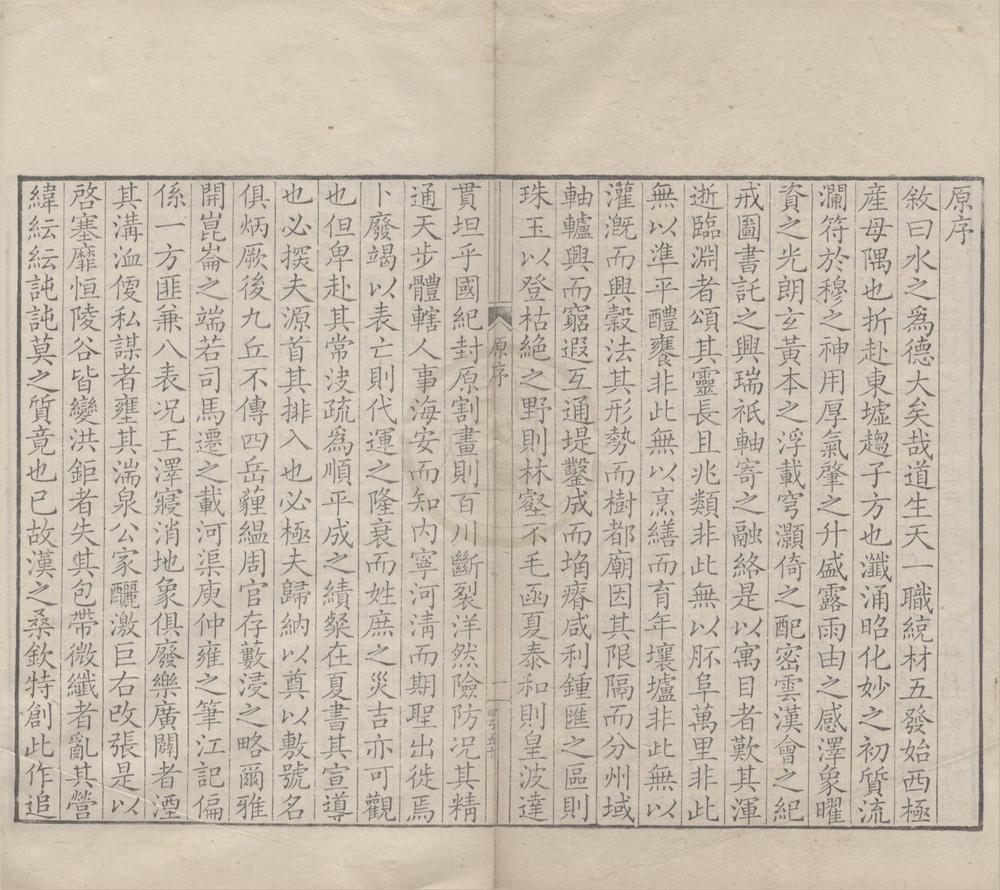 原序
敘曰水之爲德大矣哉道生天一職統材五發始西極
産母隅也折赴東墟趨子方也瀸涌昭化妙之初質流
瀾符於穆之神用厚氣肇之升盛露雨由之感澤象曜
資之光朗玄黃本之浮載穹灝倚之配密雲漢會之紀
戒圖書託之興瑞祇軸寄之融絡是以寓目者歎其渾
逝臨淵者頌其靈長且兆類非此無以胚阜萬里非此
無以準平醴饔非此無以烹繕而育年壤壚非此無以
灌溉而興穀法其形勢而樹都廟因其限隔而分州域
軸轤興而窮遐互通堤鑿成而埆瘠咸利鍾匯之區則
珠玉以登枯絶之野則林壑不毛函夏泰和則皇波達
原序
一
貫坦乎國紀封原割畫則百川斷裂洋然險防况其精
通天步體轄人事海安而知内寧河淸而期聖出徙焉
卜廢竭以表亡則代運之隆衰而姓庶之災吉亦可觀
也但卑赴其常浚疏爲順平成之績粲在夏書其宣導
也必揬夫源首其排入也必極夫歸納以奠以敷號名
俱炳厥後九丘不傳四岳薶緼周官存藪浸之略爾雅
開崑崙之端若司馬遷之載河渠庾仲雍之筆江記偏
係一方匪兼八表况王澤寢消地象俱廢樂廣闢者湮
其溝洫便私謀者壅其湍泉公家釃激巨右改張是以
啓塞靡恒陵谷皆變洪鉅者失其包帶微纖者亂其營
緯紜紜訰訰莫之質竟也已故漢之桑欽特創此作追